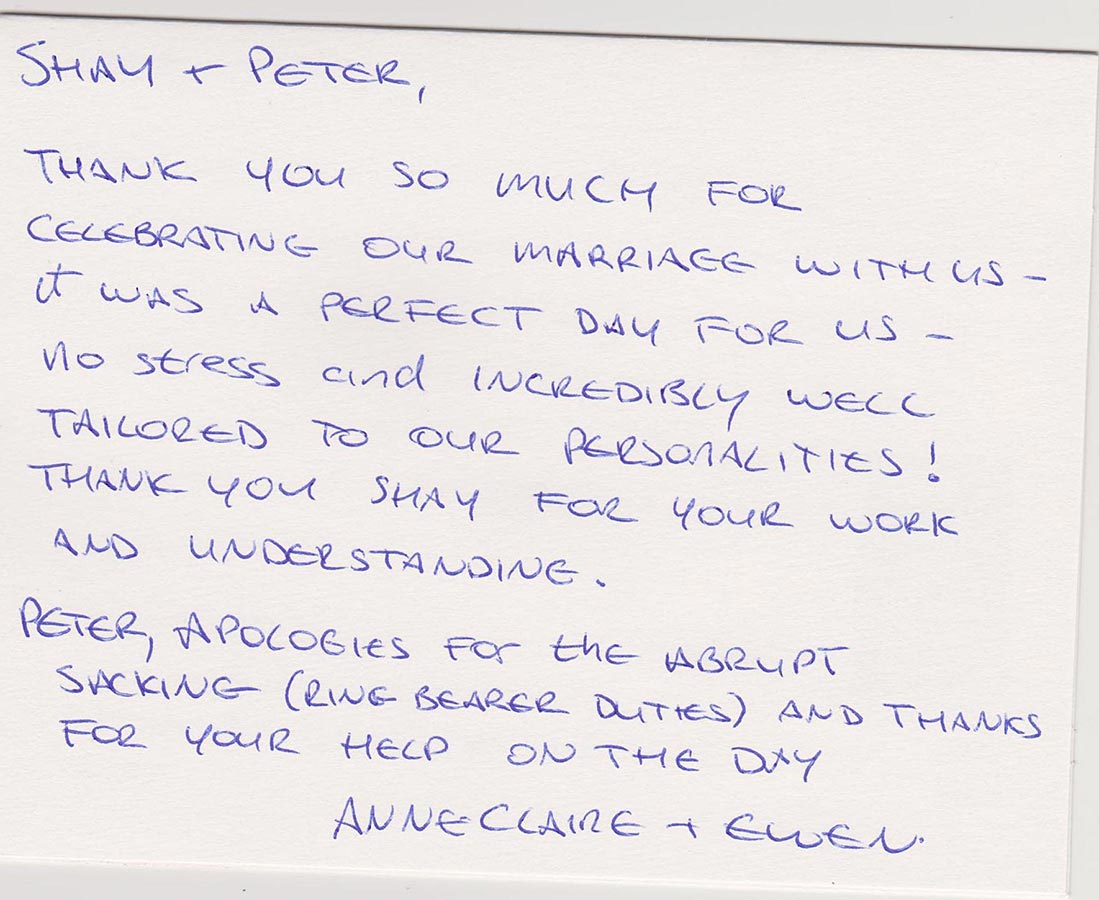 SHAY + PETER,
THANK YOU SO MUCH FOR
CELEBRATING OUR MARRIAGE WITH US –
it WAS A PERFECT DAY FOR US –
no stress and INCREDIBLY WELL
TAILORED TO OUR PERSONALITIES!
THANK YOU SHAY FOR YOUR WORK
AND UNDERSTANDING.
PETER, APOLOGIES FOR the ABRUPT
SACKING (RING BEARER DUTIES) AND THANKS
FOR YOUR HELP ON THE DAY
ANNE-CLAIRE + EWEN.